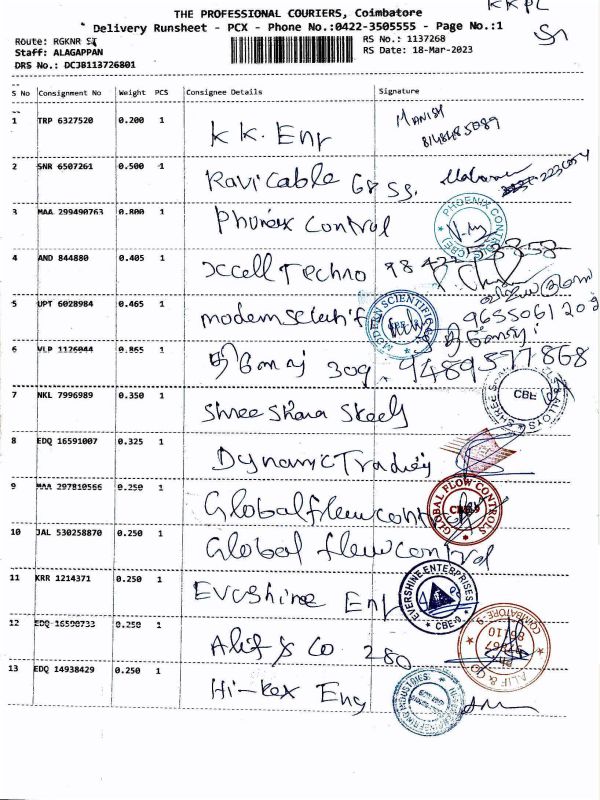 KKPL
THE PROFESSIONAL COURIERS, Coimbatore
Delivery Runsheet - PCX - Phone No.:0422-3505555 - Page No.:1
Route: RGKNR ST
RS No.: 1137268
Staff: ALAGAPPAN
RS Date: 18-Mar-2023
DRS No.: DCJB113726801
S No Consignment No Weight PCS Consignee Details Signature
1 TRP 6327520 0.200 1 KK. Enr MANISH
2 SNR 6507261 0.500 1 Ravi Cable
3 MAA 299490763 0.800 1 Phoneix Control PHOENIX CONTROLS (CBE)
4 AND 844880 0.405 1 Xcell Techno
5 UPT 6028984 0.465 1 modern scientific MODERN SCIENTIFIC CBE-9 9655061209
6 VLP 1126044 0.865 1 309. 9489597868
7 NKL 7996989 0.350 1 Shree Shara Steels CBE
8 EDQ 16591007 0.325 1 Dynamic Trading
9 MAA 297810566 0.250 1 Global flow control GLOBAL FLOW CONTROLS CBE-9
10 JAL 530258870 0.250 1 Global flow control
11 KRR 1214371 0.250 1 Evershine Enr EVERSHINE ENTERPRISES CBE-9
12 EDQ 16590733 0.250 1 Alif & Co 280 ALIF & CO COIMBATORE-9
13 EDQ 14938429 0.250 1 Hi-Rex Eng